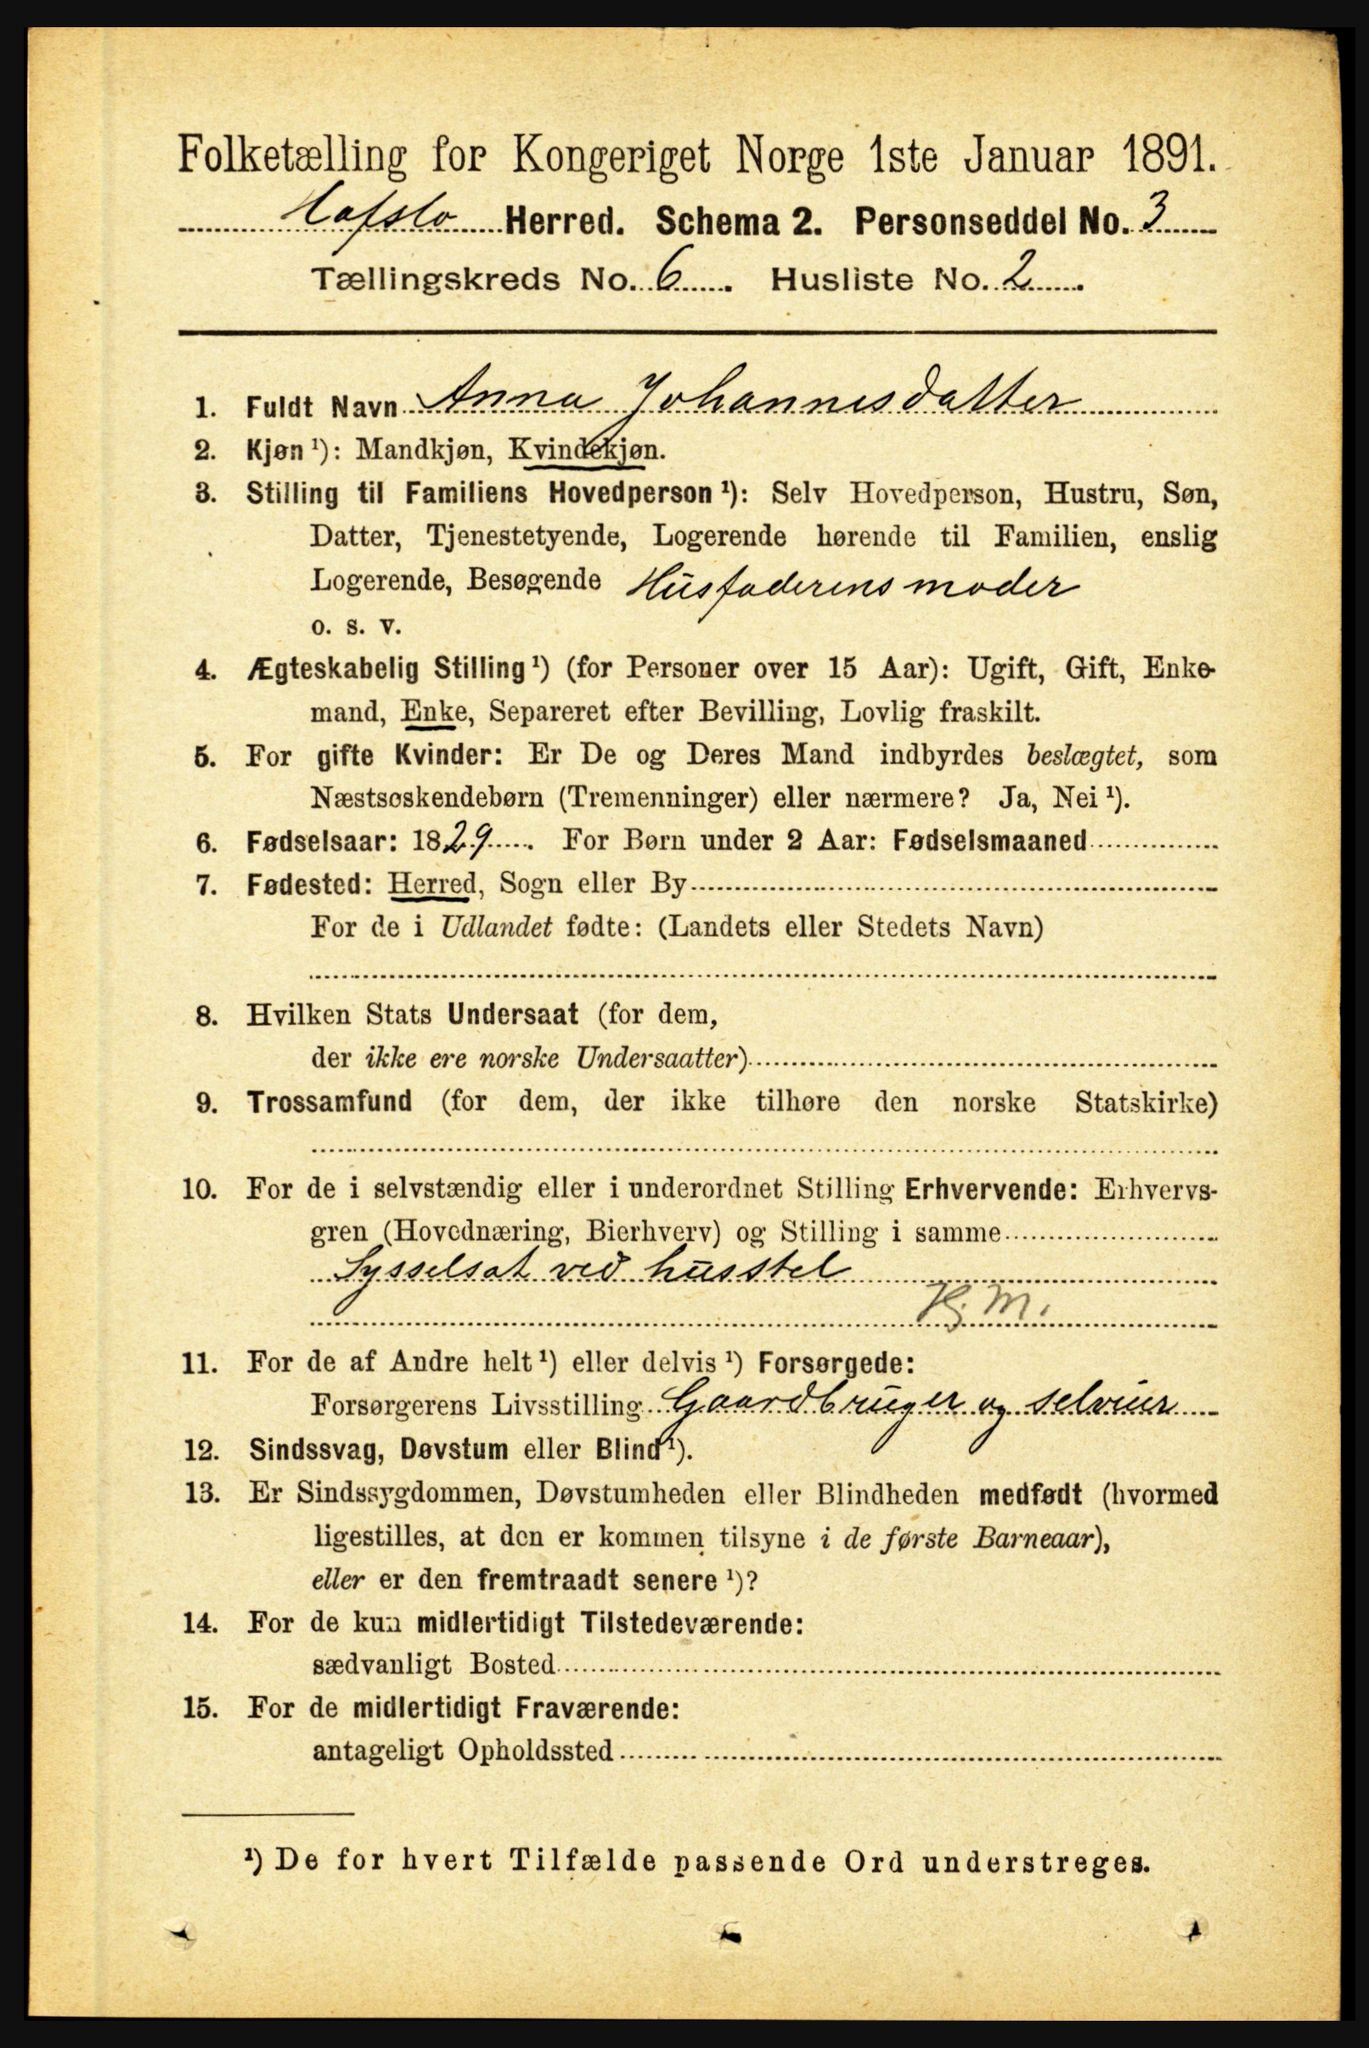 Folketælling for Kongeriget Norge 1ste Januar 1891.
Hafslo Herred. Schema 2. Personseddel No. 3
Tællingskreds No. 6. Husliste No. 2.
1. Fuldt Navn Anna Johannesdatter
2. Kjøn ¹): Mandkjøn, Kvindekjøn.
3. Stilling til Familiens Hovedperson ¹): Selv Hovedperson, Hustru, Søn,
Datter, Tjenestetyende, Logerende hørende til Familien, enslig
Logerende, Besøgende Husfaderens moder
o. s. v.
4. Ægteskabelig Stilling ¹) (for Personer over 15 Aar): Ugift, Gift, Enke-
mand, Enke, Separeret efter Bevilling, Lovlig fraskilt.
5. For gifte Kvinder: Er De og Deres Mand indbyrdes beslægtet, som
Næstsøskendebørn (Tremenninger) eller nærmere? Ja, Nei ¹).
6. Fødselsaar: 1829. For Børn under 2 Aar: Fødselsmaaned
7. Fødested: Herred, Sogn eller By
For de i Udlandet fødte: (Landets eller Stedets Navn)
8. Hvilken Stats Undersaat (for dem,
der ikke ere norske Undersaatter)
9. Trossamfund (for dem, der ikke tilhøre den norske Statskirke)
10. For de i selvstændig eller i underordnet Stilling Erhvervende: Erhvervs-
gren (Hovednæring, Bierhverv) og Stilling i samme
Sysselsat ved husstel
Hj. M.
11. For de af Andre helt ¹) eller delvis ¹) Forsørgede:
Forsørgerens Livsstilling Gaardbruger og selveier
12. Sindssvag, Døvstum eller Blind ¹).
13. Er Sindssygdommen, Døvstumheden eller Blindheden medfødt (hvormed
ligestilles, at den er kommen tilsyne i de første Barneaar),
eller er den fremtraadt senere ¹)?
14. For de kun midlertidigt Tilstedeværende:
sædvanligt Bosted
15. For de midlertidigt Fraværende:
antageligt Opholdssted
¹) De for hvert Tilfælde passende Ord understreges.